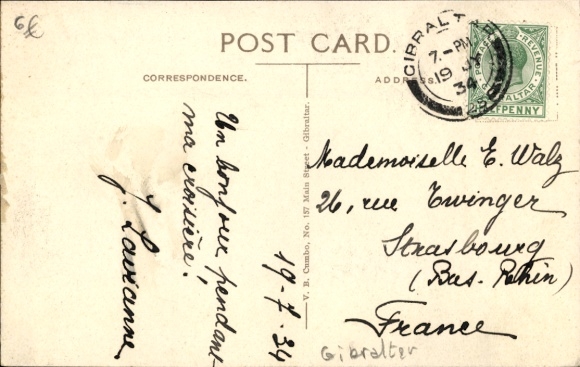 6£
POST CARD.
CORRESPONDENCE.
ADDRESS.
GIBRALTAR
7-PM
19 JY
34
POSTAGE & REVENUE
GIBRALTAR
HALFPENNY
Un bonjour pendant
ma croisière!
J. Lavianne
19-7-34
V. B. Cumbo, No. 157 Main Street - Gibraltar.
Mademoiselle E. Walz
26, rue Twinger
Strasbourg
(Bas-Rhin)
France
Gibralter